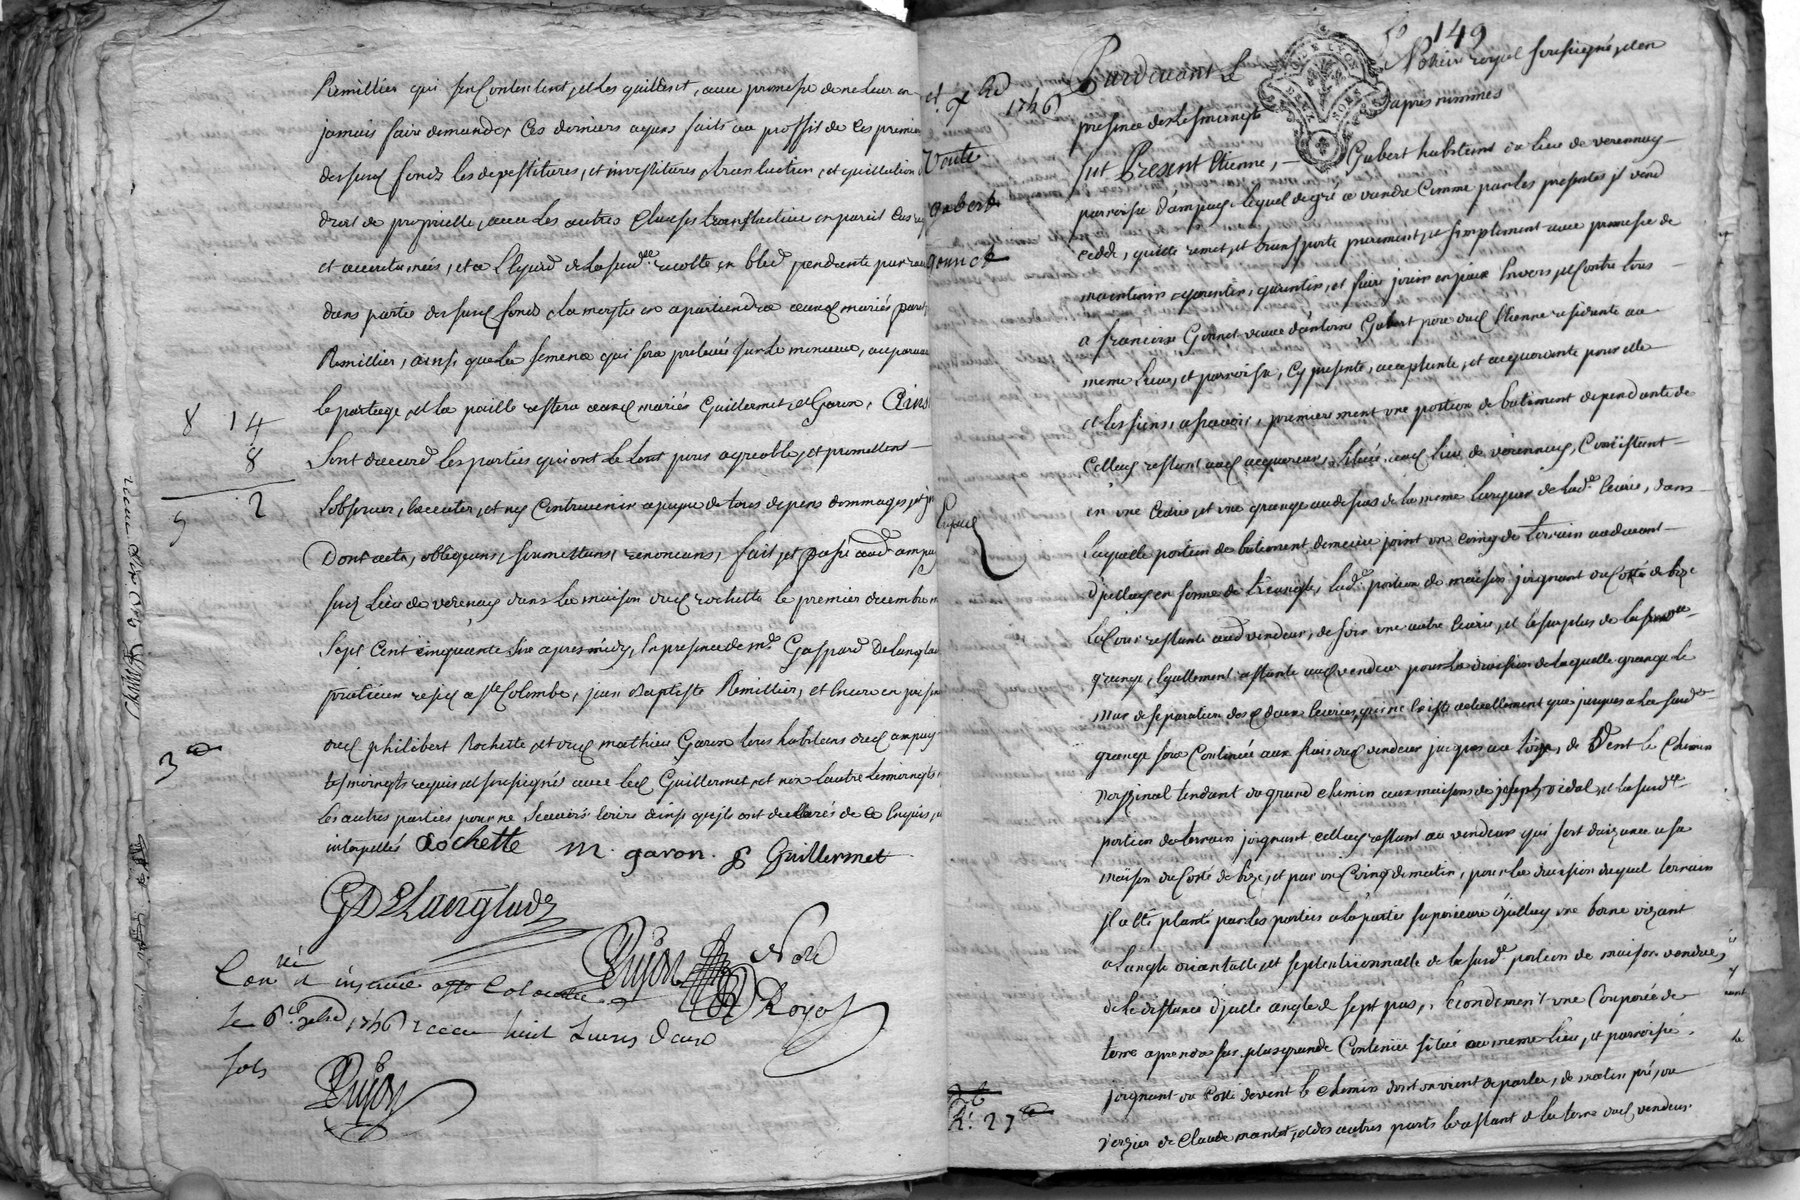 Remillier qui s'en Contentent, et les quittent, avec promesse de ne leur en
jamais faire demande, Ces derniers ayans faits au proffit de Ces premiers
desdits fonds les devestitures, et investitures, translaction, et quittation
droit de proprietté, avec les autres Clauses translactive en pareil Cas
et accoutumées, et a L'Egard de la susde recolte en bled pendante par
dans partie desdits fonds, la moytié en apartiendra auxd mariés
Remillier, ainsi que la semence qui sera prelevée sur le monceau, auparavant
le partage, et la paille restera auxd mariés Guillermet, et Garon, Ains
Sont d'accord les parties qui ont le tout pour agreable, et promettent
L'observer, l'executer, et n'y Contrevenir a peyne de tous depens dommages, et
Dont acte, obligeans, soumettans, renoncans, fait, et passé aud ampuy
sud Lieu de verenay dans la maison dud rochette le premier decembre
Sept Cent cinquante six apres midy, En presence de mr Gaspard Delanglade
praticien resid a ste Colombe, jean Baptiste Remillier, et Encore en presence
dud philibert Rochette, et dud mathieu Garon tous habitans dud ampuy
tesmoingts requis, et soussignés avec led Guillermet, et non l'autre tesmoingts
les autres parties pour ne scavoir Ecrire ainsi qu'ils ont declarés de ce Enquis,
interpellés Rochette m. garon. Guillermet
GDeLanglade
Dujon Note
Royal
Conlé et insinué a ste Colombe
le 6e xbre 1756 receu huit Livres Douze
sols
Dujon
8 14
8
5 2
3
149
1756
Vente
Gubert
Gonnet
Expedié
27
Pardevant Le Notaire royal soussigné, et en
presence des tesmoingts apres nommés
fut Present Etienne, Gubert habitant du lieu de verennay
parroisse d'ampuis, lequel de gré a vendu Comme par les presentes il vend
cedde, quitte remet, et transporte purement, et simplement avec promesse de
maintenir garentir, et faire jouir en paix Envers, et Contre tous
a francoise Gonnet veuve d'antoine Gubert pere dud Etienne residente au
meme Lieu, et parroisse, Cy presente, acceptante, et acquerante pour elle
et les siens, a scavoir, premierement une portion de batiment dependante de
Celluy restant aud acquereur, située aud lieu de verennay, Consistant
en une Ecurie, et une grange au dessus de la meme Largeur de lade Ecurie, dans
laquelle portion de batiment demeure joint un coing de terrain au devant
d'jcelluy en forme de trïangle, lade portion de maison joignant du Costé de bize
la Cour restante aud vendeur, de soir une autre Ecurie, et le surplus de la susde
grange, Egallement restante aud vendeur pour la division de laquelle grange le
mur de separation desd deux Ecuries, qui ne Existe actuellement que jusques a la susde
grange sera Continüé aux frais dud vendeur jusques au toit, de Vent le Chemin
vicinal tendant du grand chemin aux maisons de joseph vidal, et la susde
portion de terrain joignant celluy restant au vendeur qui sert d'aizance a sa
maison du Costé de bize, et par un Coing de matin, pour la division duquel terrain
il a eté planté par les parties a la partie superieure d'jcelluy une borne vizant
a l'angle orientalle, et septentrionnalle de la susde portion de maison vendue,
de la distance d'jcelle angle de sept pas, secondement une Couporée de
terre a prendre sur plus grande Contenüe située au meme lieu, et parroisse,
joignant du Costé devent le chemin dont on vient de parler, de matin pré, ou
verger de Claude mantet, et des autres parts le restant de la terre dud vendeur